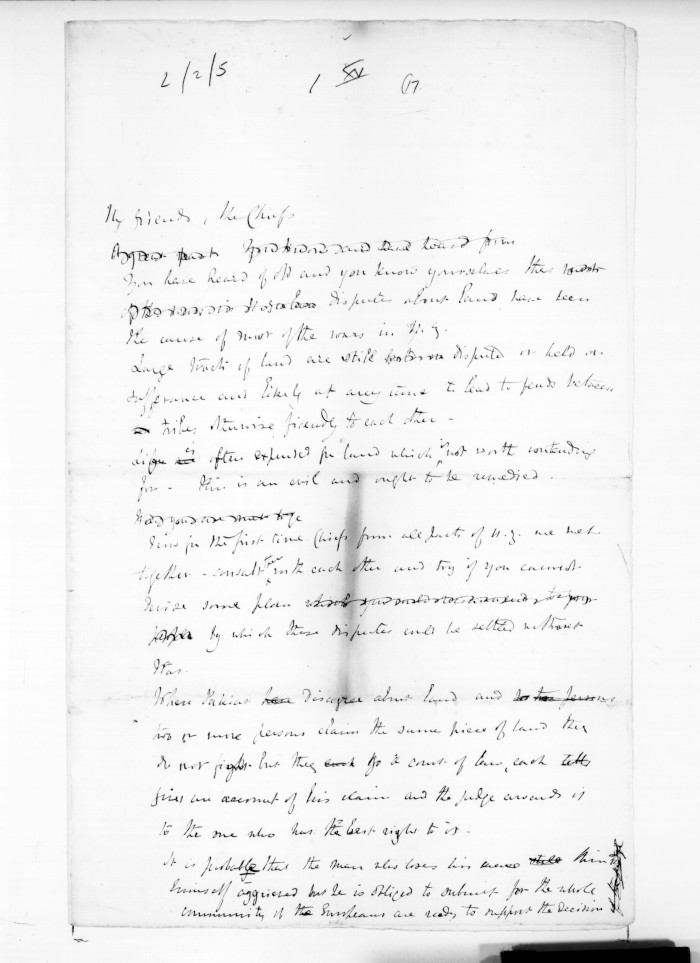 2/2/5
My friends, the Chiefs
You have heard of old and you know yourselves that
disputes about land have been
the cause of most of the wars in N.Z.
Large tracts of land are still dispute or held on
sufferance and likely at any time to lead to feuds between
tribes otherwise friendly to each other -
life is often expended for land which is not worth contending
for - This is an evil and ought to be remedied.
Now for the first time Chiefs from all parts of N.Z. are met
together - consult with each other and try if you cannot
devise some plan
by which these disputes could be settled without
War.
Where Pakehas have disagree about land and
two or more persons claim the same piece of land they
do not fight but they each go to court of law, each tells
gives an account of his claim and the judge awards it
to the one who has the best right to it.
It is probable that the man who loses his thinks
himself aggrieved but he is obliged to submit for the whole
community of the Europeans are ready to support the decision